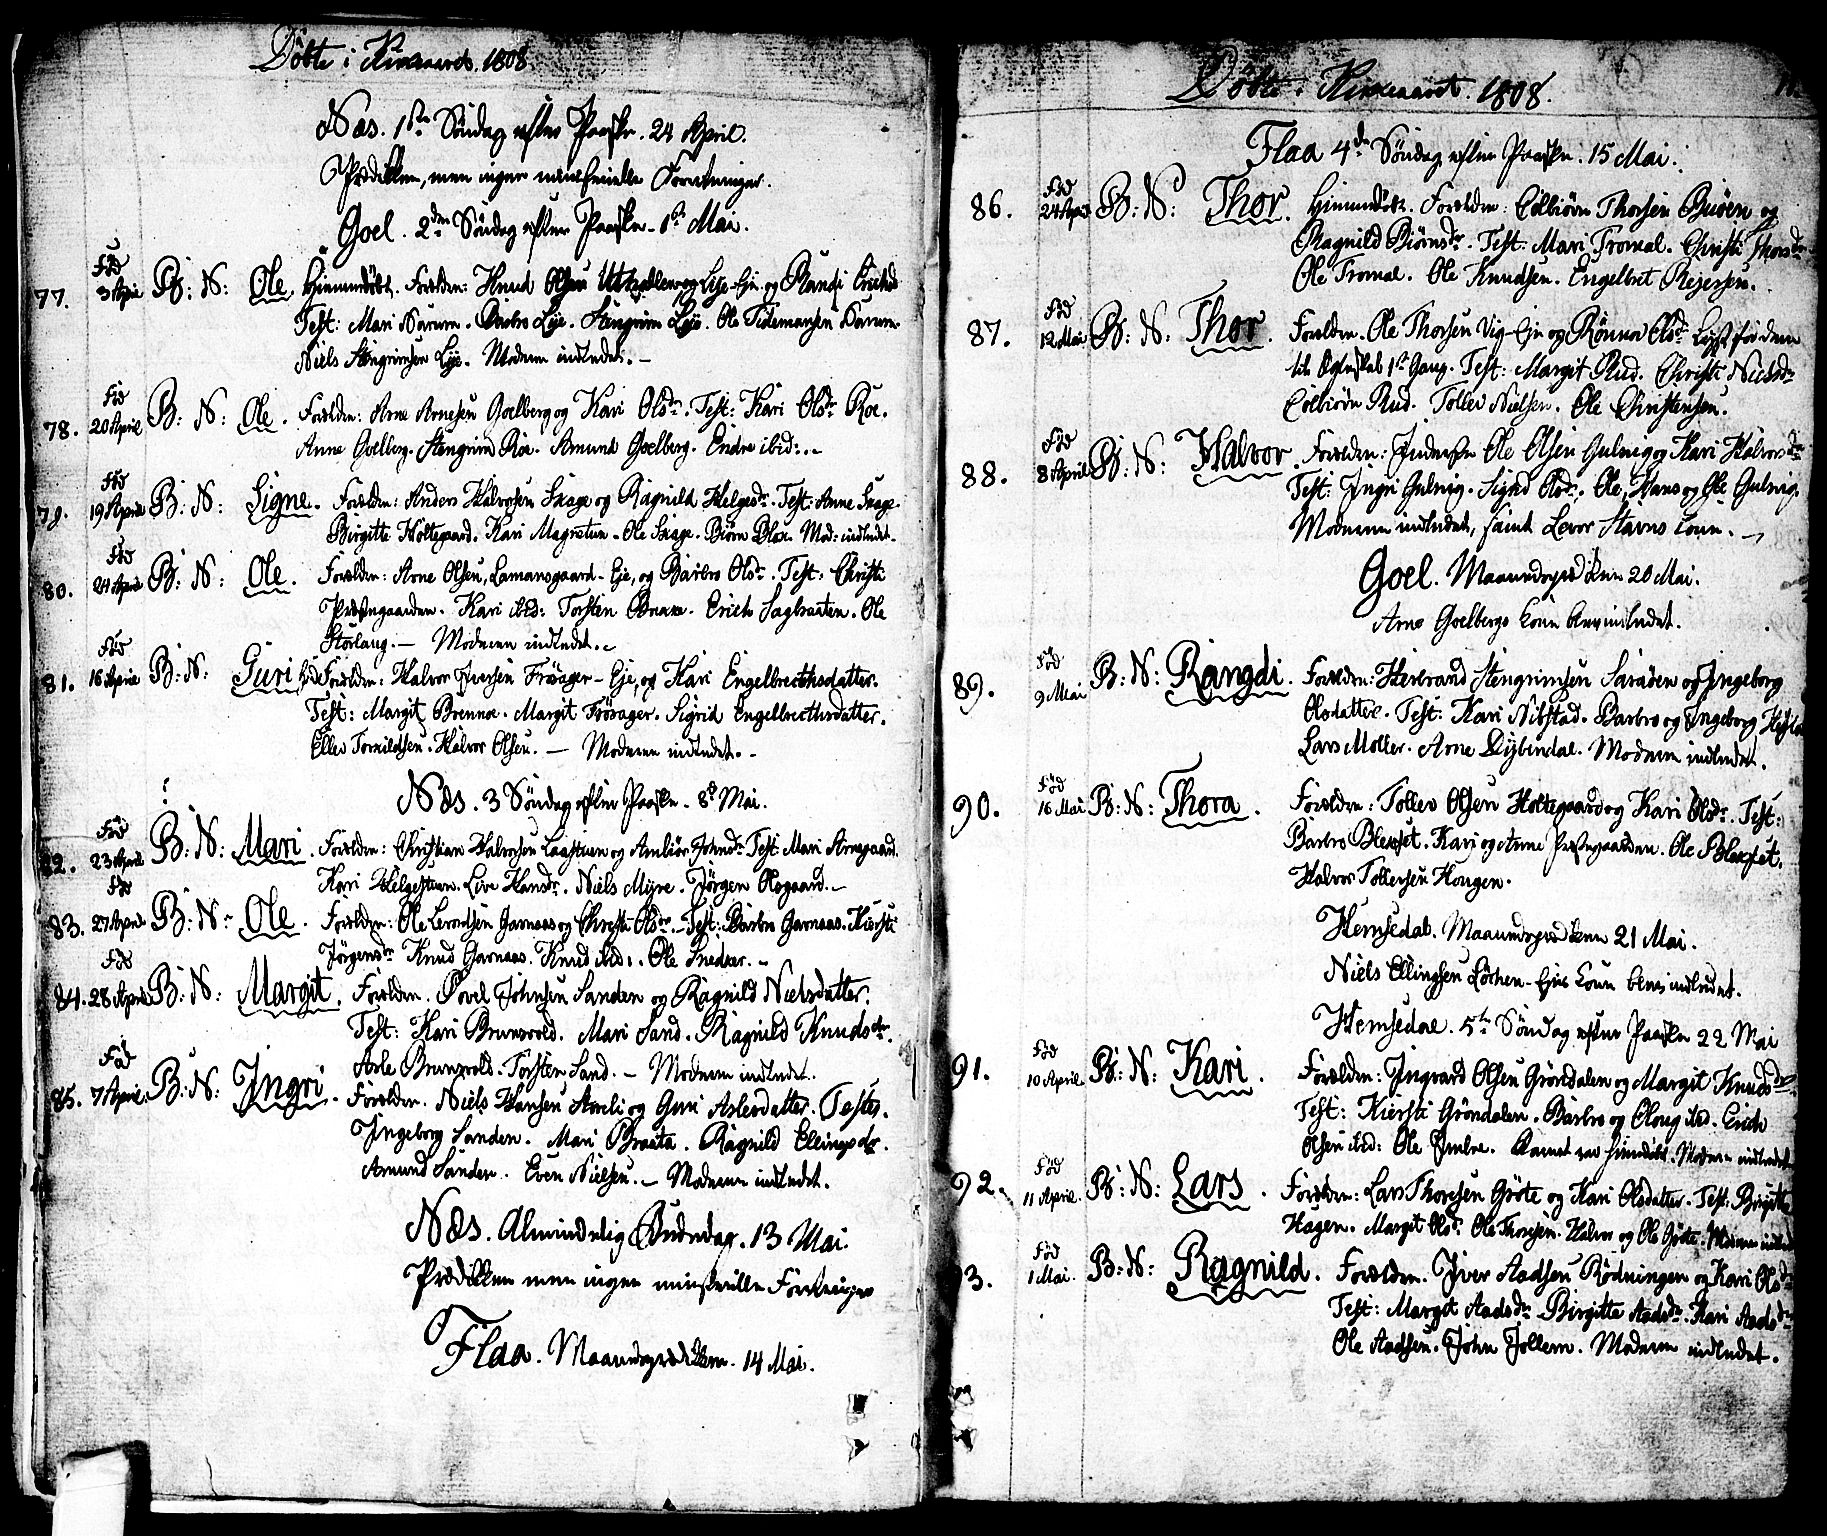 Döbte i Kirkeaaret 1808.
Næs. 1ste Söndag efter Paaske. 24 April.
Prædiken, men ingen ministerielle Forretninger.
Goel. 2den Söndag efter Paaske. 1ste Mai.
77. Fød 3 April B: N: Ole, Hjemmedöbt. Forældre: Knud Olsen og Randi
Test: Mari Narum. Barbro Lye. Stengrim Lye. Ole Tidemansen Narum.
Niels Stengrimsen Lye. Moderen indledet. –
78. Fød 20 April B: N: Ole. Forældre: Arne Arnesen Goelberg og Kari Olsdr. Test: Kari Olsdr Roe.
Anne Goelberg. Stengrim Roe. Amund Goelberg. Endre ibid: –
79. Fød 19 April B: N: Signe. Forældre: Anders Halvorsen Skage og Ragnild Helgesdr. Test: Anne Skage.
Birgitte Holtegaard. Kari Magnetun. Ole Skage. Biørn Blox. Mod: indledet.
80. Fød 24 April B: N: Ole. Forældre: Arne Olsen, Lamansgaard-Eje, og Barbro Olsdr. Test: Christi
Præstgaarden. Kari ibid: Torsten Brura. Erich Sagbraaten. Ole
Storlaug. – Moderen indledet. –
81. Fød 16 April B: N: Guri, Forældre: Halvor Iversen Frøsager-Eje, og Kari Engelbrecthsdatter.
Test: Margit Brennæ. Margit Frøsager. Sigrid Engelbrecthsdatter.
Eller Torkildsen. Halvor Olsen. – Moderen indledet. –
Næs. 3 Söndag efter Paaske. 8de Mai.
82. Fød 23 April B: N: Mari. Forældre: Christian Halvorsen og Johnsdr. Test: Mari Arnegaard.
Kari Helgestuen. Live Hansdr. Niels Myre. Jörgen Olsgaard. –
83. Fød 27 April B: N: Ole. Forældre: Ole Levordsen Garnaas og Christi Olsdr. Test: Barbro Garnaas. Kiersti
Jörgensdr Knud Garnaas. Knud ibid: Ole –
84. Fød 28 April B: N: Margit. Forældre. Povel Johnsen Sanden og Ragnild Nielsdatter.
Test: Kari Brunsvold. Mari Sand. Ragnild Knudsdr.
Asle Brunsvold. Torsten Sand. – Moderen indledet.
85. Fød 7 April B: N: Ingri. Forældre. Niels Hansen og Guri Aslesdatter. Testes.
Ingeborg Sanden. Mari Braata. Ragnild Ellingsdr.
Amund Sanden. Even Nielsen. – Moderen indledet.
Næs. Almindelig Bededag. 13 Mai.
Prædiken men ingen ministerielle Forretninger
Flaa. Maanedsprædiken. 14 Mai.
Döbte i Kirkeaaret. 1808.
Flaa 4de Söndag efter Paaske. 15 Mai.
86. Fød 24 April B: N: Thor. Hjemmedöbt. Forældre: Colbiörn Thorsen Bröen og
Ragnild Biörnsdr. Test: Mari Tromal. Christi Thorsdr
Ole Tromal. Ole Knudsen. Engelbret Rejersen.
87. Fød 12 Mai B: N: Thor. Forældre. Ole Thorsen Vig-Eje og Rönnov Olsdr. Lyst for dem
til Ægteskab 1ste Gang. Test: Margit Rud. Christi Nielsdr
Colbiörn Rud. Tollev Nielsen. Ole Christensen.
88. Fød 8 April B: N: Halvor. Forældre: Inderste Ole Olsen Gulvig og Kari Halvorsdr
Test: Ingri Gulvig. Sigrid Olsdr. Ole, Hans og Ole Gulvig.
Moderen indledet, samt Levor Stavns Kone. –
Goel. Maanedsprædiken 20 Mai.
Arne Goelbergs Kone blev indledet.
89. Fød 9 Mai B: N: Rangdi. Forældre: Herbrand Stengrimsen og Ingeborg
Olsdatter. Test: Kari Nibstad. Barbro og Ingeborg
Lars Moller. Arne Dybendal. Moderen indledet.
90. Fød 16 Mai B: N: Thora. Forældre: Tollev Olsen Holtegaard og Kari Olsdr. Test:
Barbro Blexset. Kari og Anne Præstgaarden. Ole Blexset.
Halvor Tollersen Hougen.
Hemsedal. Maanedsprædiken 21 Mai.
Niels Ellingsen Löthen-Ejes Kone blev indledet.
Hemsedal. 5te Söndag efter Paaske 22 Mai
91. Fød 10 April. B: N: Kari. Forældre: Ingvard Olsen Gröndalen og Margit Knudsdr
Test: Kiersti Gröndalen. Barbro og Oloug ibid. Erich
Olsen ibid: Ole Barnet var hjemdöbt. Moderen indledet
92. Fød 11 April. B: N: Lars. Forældre: Lars Thoresen Gröte og Kari Olsdatter. Test. Birgitte
Hagen. Margit Olsdr. Ole Thoresen. Halvor og Ole Gröte. Moderen
93. Fød 1 Mai. B: N: Ragnild. Forældre. Iver Aadsen Rödningen og Kari Olsdr
Test: Margit Aadsdr. Birgitte Aadsdr. Kari Aadsdr
Ole Aadsen. John Jollem. Moderen indledet.